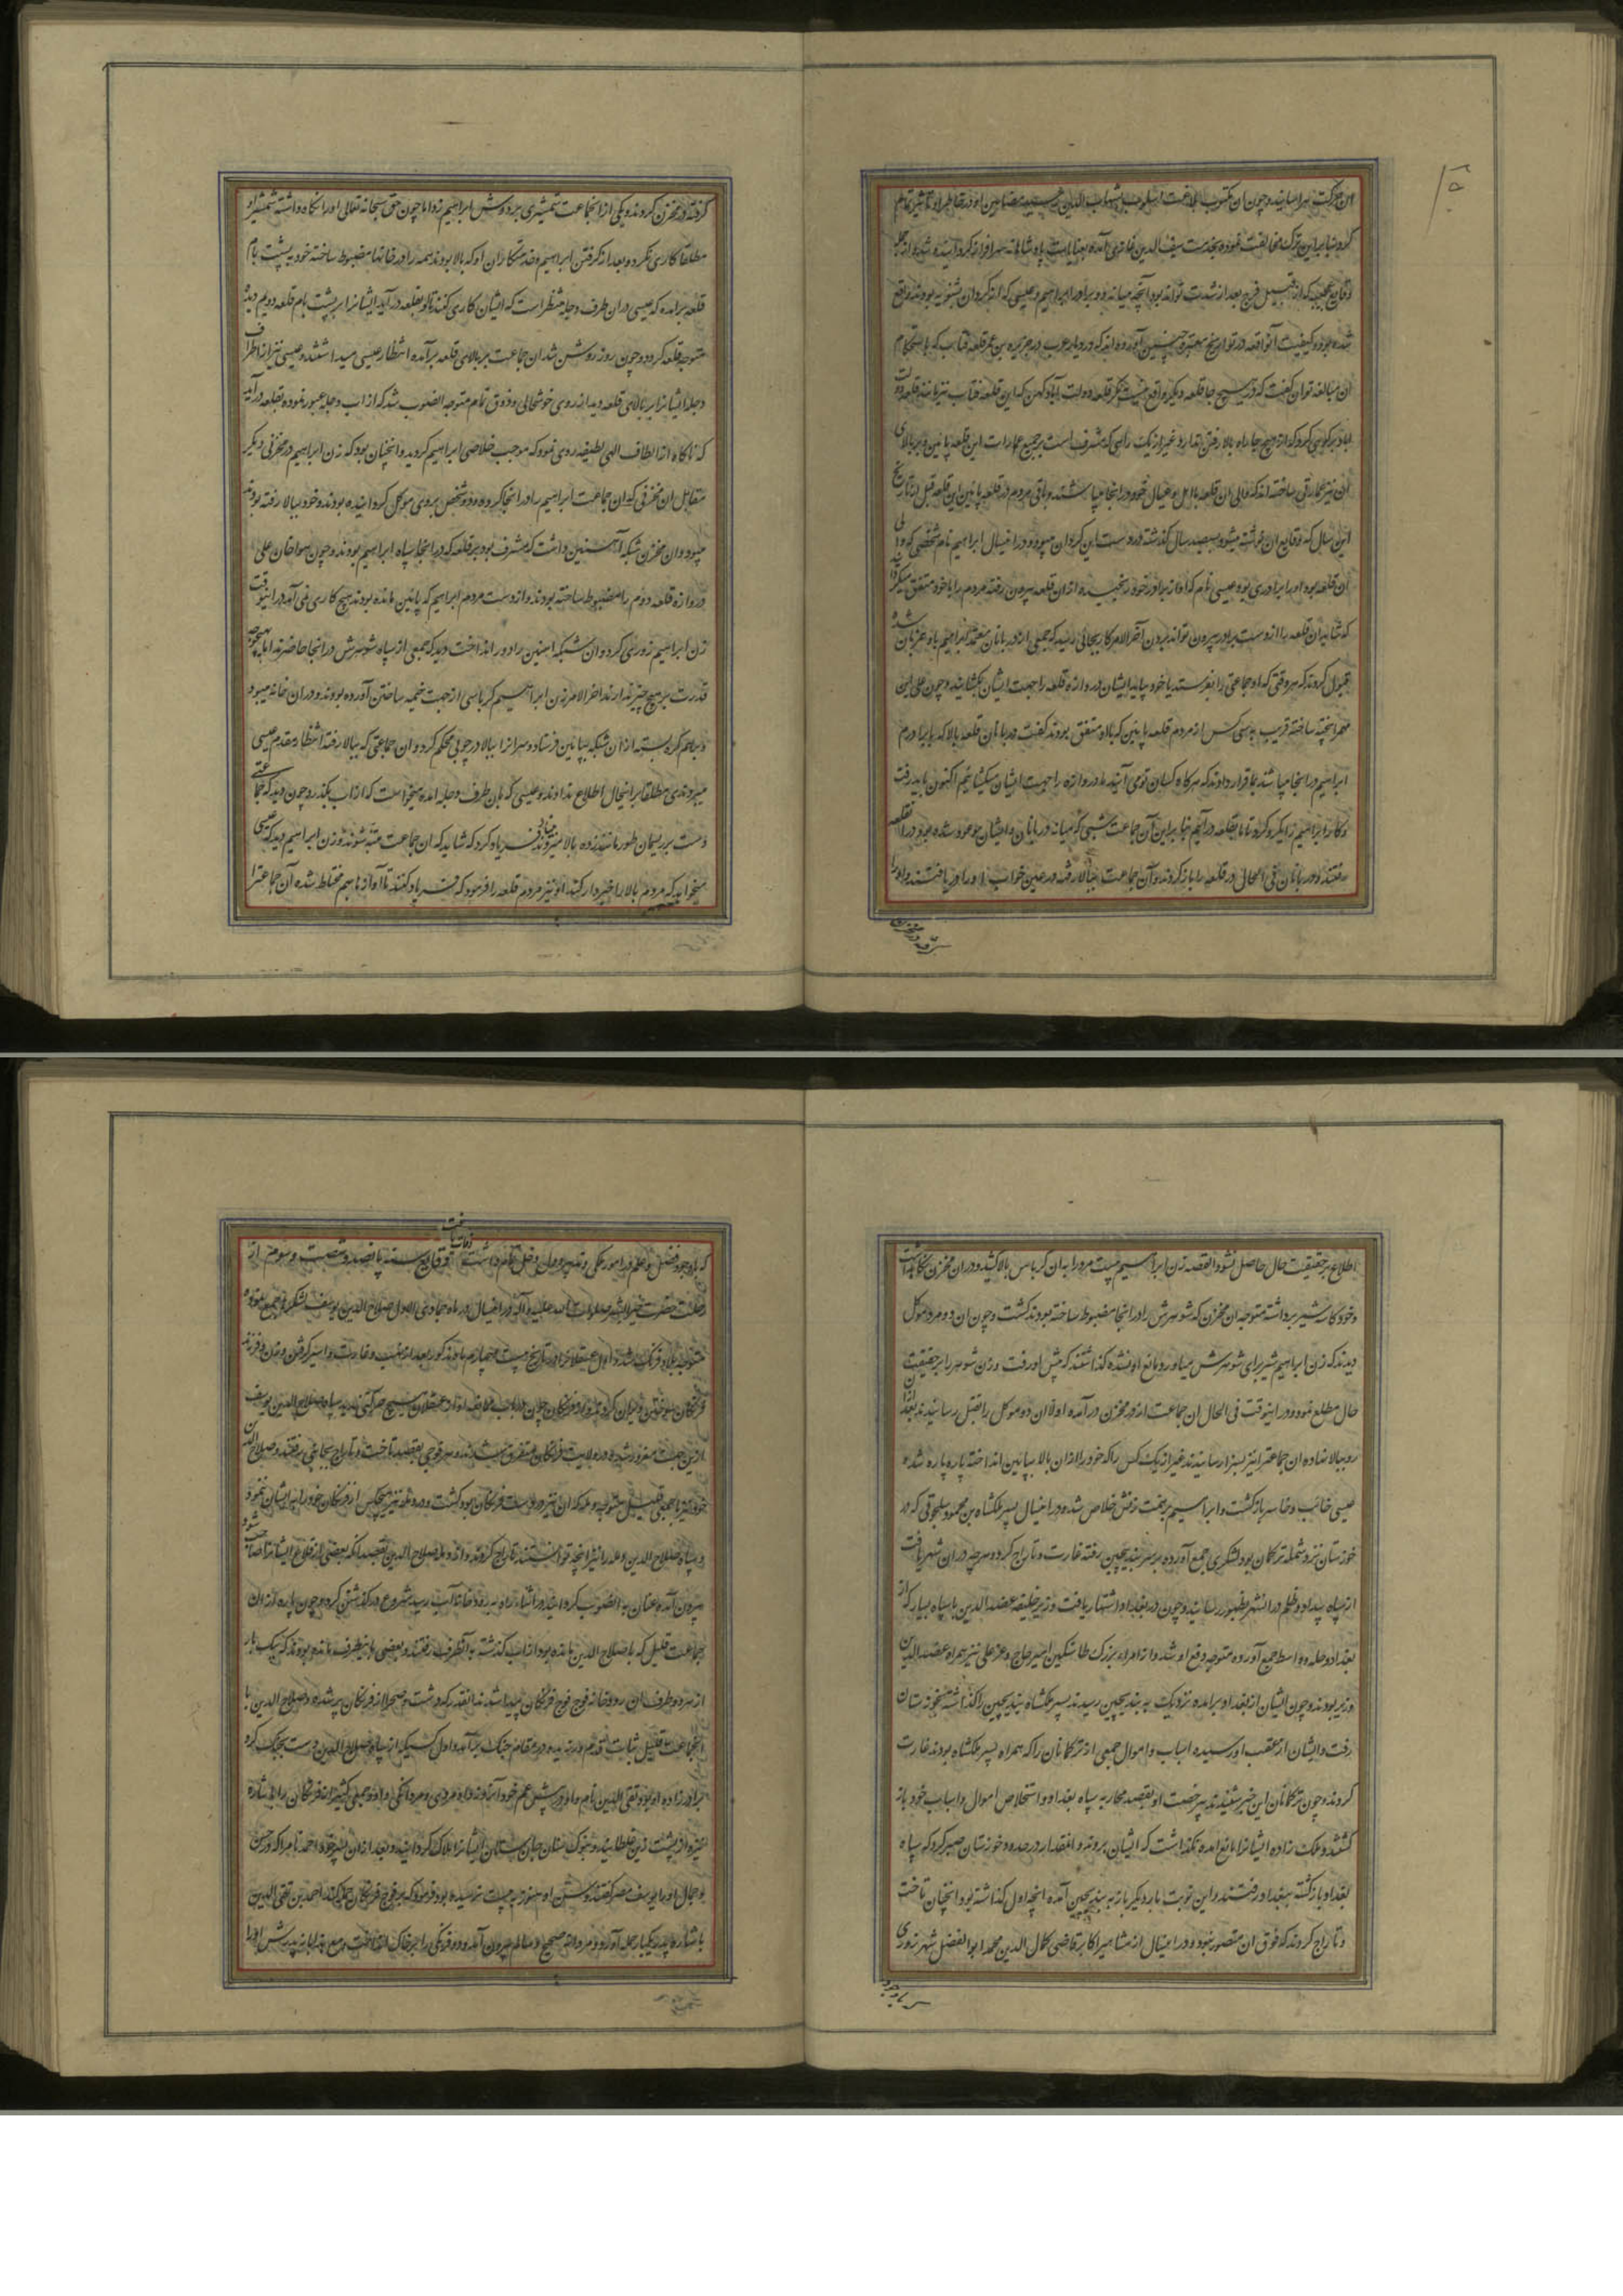 ان حرکت بهراسانید و چون ان مکتوب بلاغت اسلوب بشهاب الدین رسید مضامین او در خاطر او تاثیر تمام
کرد بنابراین ترک مخالفت نموده بخدمت سیف الدین غازی آمده بعنایات پادشاهانه سرافراز گردانیده شد و از جمله
وقایع عجیب که از قبیل فرج بعد از شدت تواند بود آنچه میانه دو برادر ابراهیم و عیسی که از کردان بشنویه بودند واقع
شده بود و کیفیت آنواقعه در تواریخ معتبره چنین آورده اند که در دیار عرب در جزیره بن عمر قلعه فنک که باستحکام
ان مبالغه توان گفت که در هیچ جا قلعه دیگر واقع نیست مگر قلعه دولت آباد کهن که این قلعه
اباد بر کوهی که از هیچ جا راه بالا رفتن ندارد و غیر از یک راهی که مشرف است بر جمیع عمارات این قلعه پائین و بر بالای
ان نیز عمارتی ساخته اند که والی ان قلعه با اهل و عیال خود در انجا میباشند و باقی مردم در قلعه پائین این قلعه قبل از تاریخ
این سال که وقایع ان نوشته میشود بسیصد سال گذشته در دست این کردان میبود و در اینسال ابراهیم نام شخصی که والی
ان قلعه بود او را برادری بود عیسی نام که او از برادر خود رنجیده از ان قلعه بیرون رفته مردم را با خود متفق میگردانید
که شاید ان قلعه را از دست برادر بیرون تواند برد آخر الامر کار بجائی رسید که جمعی از دربانان معتمد ابراهیم با او همزبان شده
قبول کردند که هر وقتی که او جماعتی را بفرستد یا خود بیاید ایشان دروازه قلعه را جهت ایشان بگشایند و چون علی این
مهم را پخته ساخته قریب به سی کس از مردم قلعه پایین که با او متفق بودند گفت دربانان قلعه بالا که برادرم
ابراهیم در انجا میباشد بما قرار دادند که هر کاه کسان تو می آیند ما دروازه را جهت ایشان میگشائیم اکنون باید رفت
و کار ابراهیم را یکرو کرد تا ما بقلعه درآئیم بنابراین آن جماعت شبی که میانه دربانان و ایشان موعود شده بود در قلعه
رفتند و دربانان فی الحال در قلعه را باز کردند و آن جماعت ببالا رفته در عین خواب او را دریافتند و او را
گرفته در مخزن
گرفته در مخزن کردند و یکی از انجماعت شمشیری بر دوش ابراهیم زد اما چون حق سبحانه تعالی او را نگاه داشته شمشیر او
مطلقا کاری نکرد و بعد از گرفتن ابراهیم خدمتکاران او که بالا بودند همه را در خانها مضبوط ساخته خود به پشت بام
قلعه برآمده که عیسی در ان طرف دجله منتظر است که ایشان کاری کنند تا او بقلعه درآید ایشان را بر پشت بام قلعه دویم دیده
متوجه قلعه گردد و چون روز روشن شد ان جماعت بر بالای قلعه برآمده انتظار عیسی میداشتند و عیسی نیز از اطراف
دجله ایشانرا بر بالای قلعه دید از روی خوشحالی و ذوق تمام متوجه انصوب شد که از اب دجله عبور نموده بقلعه درآید
که ناکاه از الطاف الهی لطیفه روی نمود که موجب خلاصی ابراهیم گردید و انچنان بود که زن ابراهیم در مخزنی دیگر
مقابل ان مخزنی که ان جماعت ابراهیم را در انجا کرده و دو شخص بر وی موکل گردانیده بودند و خود ببالا رفته بودند
میبود و ان مخزن شبکه آهنین داشت که مشرف بود بر قلعه که در انجا سپاه ابراهیم بودند و چون هواخان علی
دروازه قلعه دوم را مضبوط ساخته بودند و از دست مردم ابراهیم که پائین مانده بودند هیچ کاری نمی آمد در اینوقت
زن ابراهیم زوری کرد و ان شبکه اهنین را دور انداخت دید که جمعی از سپاه شوهرش در انجا حاضرند اما هیچوجه
قدرت بر هیچ چیز ندارند اخر الامر زن ابراهیم کرباسی از جهت خیمه ساختن آورده بودند و در ان خانه میبود
و بر هم گره بسته از ان شبکه بپائین فرستاد و سر انرا ببالا در چوبی محکم کرد و ان جماعتی که ببالا رفته انتظار مقدم عیسی
میبردندی مطلقا براینحال اطلاع ندادند و عیسی که بان طرف دجله امده میخواست که از اب بگذرد چون دید که جماعتی
دست بر ریسمان طور مانند زده بالا میروند بنیاد فریاد کرد که شاید که ان جماعت متنبه شوند و زن ابراهیم دید که عیسی
میخواهد که مردم بالا را خبردار کند او نیز مردم قلعه را فرمود که فریاد کنند تا آوازها بهم مختلط شده آن جماعترا
اطلاع بر حقیقت حال حاصل نشود القصه زن ابراهیم بیست مرد را به ان کرباس بالا کشیده در ان مخزن نگاه داشت
و خود کاسه شیر برداشته متوجه ان مخزن که شوهرش را در انجا مضبوط ساخته بودند گشت و چون ان دو مرد موکل
دیدند که زن ابراهیم شیر برای شوهرش میاورد مانع او نشده گذاشتند که پیش او رفت و زن شوهر را بر حقیقت
حال مطلع نمود و در اینوقت فی الحال ان جماعت از در مخزن در آمده اولا ان دو موکل را بقتل رسانیدند بعد از ان
رو ببالا نهاده ان جماعترا نیز بسزا رسانیدند غیر از یک کس را که خود را از ان بالا بپائین انداخته پاره پاره شده
عیسی خائب و خاسر بازگشت و ابراهیم بهمت زنش خلاص شد و در اینسال پسر ملکشاه بن محمود سلجوقی که در
خوزستان نزد شمله ترکمان بود لشکری جمع آورده بر سر بندیجین رفته غارت و تاراج کرد و هر چه در ان شهر یافت
از سپاه بیداد و ظلم در انشهر بظهور رسانید و چون در بغداد اشتهار یافت وزیر خلیفه عضد الدین با سپاه بسیار که از
بغداد و حله و واسط جمع آورده متوجه دفع او شد و از امراء بزرگ طاشتکین امیر حاج و عز علی نیز همراه عضد الدین
وزیر بودند و چون ایشان از بغداد برامده نزدیک به بندیجین رسیدند پسر ملکشاه بندیجین را گذاشته بخوزستان
رفت و ایشان از عقب او رسیده اسباب و اموال جمعی از ترکمانان را که همراه پسر ملکشاه بودند غارت
کردند و چون ترکمانان این خبر شنیدند بی رخصت او بقصد محاربه سپاه بغداد و استخلاص اموال و اسباب خود باز
گشتند و ملک زاده ایشانرا مانع امده نگذاشت که ایشان بروند و انمقدار در حدود خوزستان صبر کرد که سپاه
بغداد بازگشته ببغداد رفتند و این نوبت بار دیگر باز به بندیجین آمده انچه اول گذاشته بود انچنان تاخت
و تاراج کردند که فوق ان متصور نبود و در اینسال از مشاهیر اکابر قاضی کمال الدین محمد ابو الفضل شهرزوری
که با وجود
که با وجود فضل و علم در امور ملکی و تدبیر دول دخل تمام داشت وفات یافت وقایع سنه پانصد و شصت و سوم از
رحلت حضرت خیر البشر صلوات الله علیه و آله در اینسال در ماه جمادی الاول صلاح الدین یوسف لشکر جمع نموده
متوجه بلاد فرنگ شد و اول بعسقلان در تاریخ بیست چهارم ماه مذکور بعد از نهب و غارت و اسیر گرفتن زن و فرزند
فرنگیان سوختن و ویران کردن و چون فرنگان هیچ حرکتی ندیدند سپاه صلاح الدین یوسف
ازین جهت مغرور شده در ولایت فرنگان متفرق شدند و هر فوجی بقصد تاخت و تاراج بجائی رفتند و صلاح الدین
خود نیز با جمعی قلیل متوجه رمله که ان نیز در دست فرنگان بود گشت و در رمله نیز هیچکس از فرنگان خود را به ایشان ننمود
و سپاه صلاح الدین رمله را نیز انچه توانستند تاراج کردند و از رمله صلاح الدین بقصد انکه بعضی از قلاع ایشانرا صاحب شود
بیرون آمده عنان به انصوب گردانید در اثناء راه به رودخانه آب رسید شروع در گذشتن کرد و چون پاره از ان
جماعت قلیل که با صلاح الدین مانده بود از اب گذشته به آنطرف رفتند و بعضی باینطرف مانده بودند که یک بار
از هر دو طرف ان رودخانه فوج فوج فرنگان پیدا شدند انقدر که دشت و صحرا از فرنگان پر شده و صلاح الدین با
انجماعت قلیل ثبات قدم ورزیده در مقام جنگ برآمد و اول کسیکه از سپاه صلاح الدین دست بجنگ کرد
برادرزاده او بود تقی الدین نام و او در پیش عم خود آنروز داد مردی و مردانگی داد و جمعی کثیر از فرنگان را به اشاره
نیزه از پشت زین غلطانید و بنوک سنان جان ستان ایشانرا هلاک گردانید و بعد از ان پسر خود احمد نام را که در حسن
و جمال او را یوسف مصر گفتند و سن او هنوز به بیست نرسیده بود فرمود که بر فوج فرنگان حمله کند احمد بن تقی الدین
باشاره پدر یکبار حمله آورد و مردانه صحیح و سالم بیرون آمد و دو فرنگی را بر خاک انداخت و مع هذا باز پدرش او را